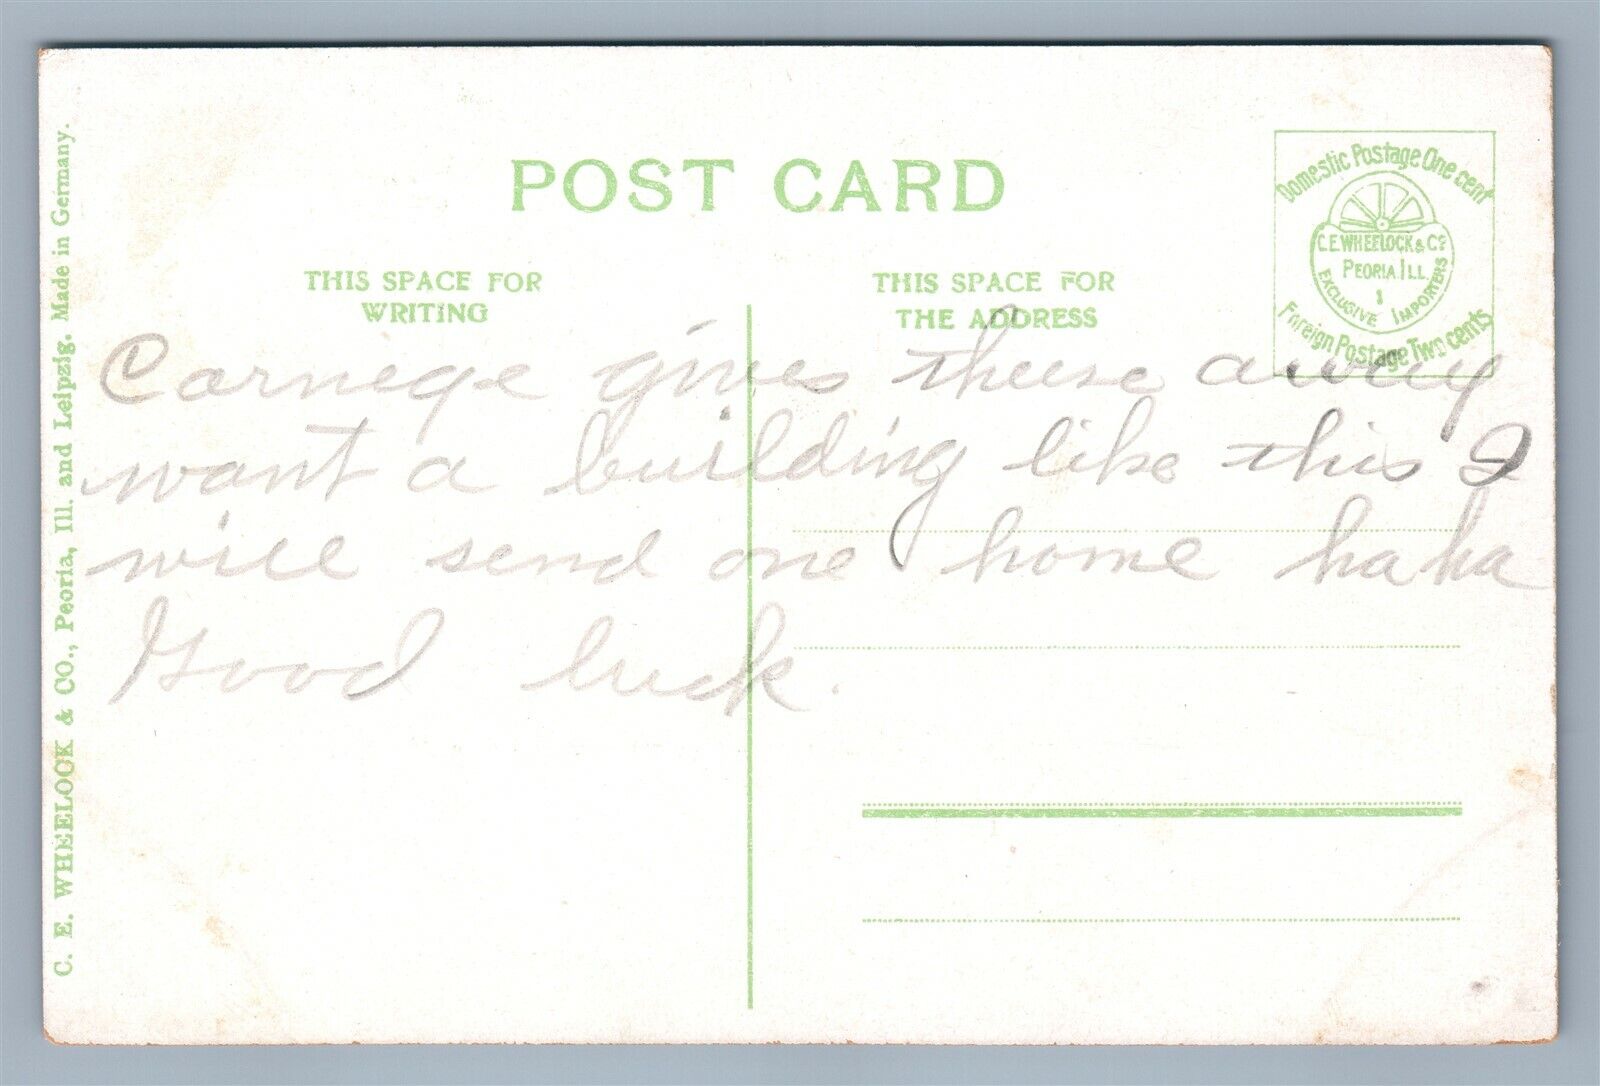 POST CARD
THIS SPACE FOR
WRITING
THIS SPACE FOR
THE ADDRESS
Domestic Postage One cent
C.E. WHEELOCK & Co
PEORIA ILL.
1
EXCLUSIVE IMPORTERS
Foreign Postage Two cents
Carnege gives theese away
want a building like this I
will send one home haha
Good luck.
C. E. WHEELOCK & CO., Peoria, Ill. and Leipzig. Made in Germany.